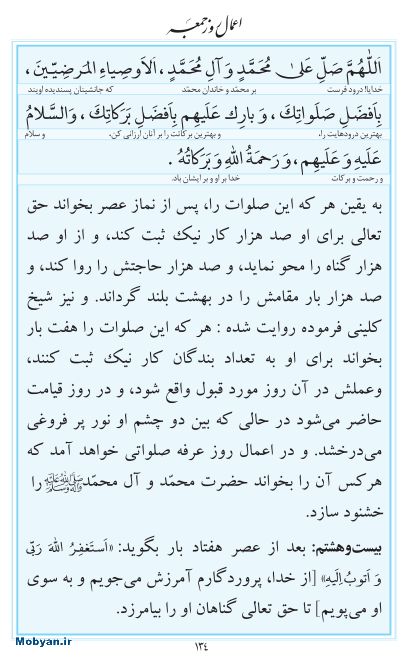 اعمال روز جمعه
اَللّٰهُمَّ صَلِّ عَلیٰ مُحَمَّدٍ وَ آلِ مُحَمَّدٍ، اَلاَوصِیاءِ المَرضِیّینَ،
خدایا! درود فرست بر محمّد و خاندان محمّد که جانشینان پسندیده اویند
بِاَفضَلِ صَلَواتِكَ، وَ بارِك عَلَیهِم بِاَفضَلِ بَرَكاتِكَ، وَالسَّلامُ
بهترین درودهایت را، و بهترین برکاتت را بر آنان ارزانی کن، و سلام
عَلَیهِ وَ عَلَیهِم، وَ رَحمَةُ اللهِ وَ بَرَكاتُهُ.
و رحمت و برکات خدا بر او و بر ایشان باد.
به یقین هر که این صلوات را، پس از نماز عصر بخواند حق
تعالی برای او صد هزار کار نیک ثبت کند، و از او صد
هزار گناه را محو نماید، و صد هزار حاجتش را روا کند، و
صد هزار بار مقامش را در بهشت بلند گرداند. و نیز شیخ
کلینی فرموده روایت شده : هر که این صلوات را هفت بار
بخواند برای او به تعداد بندگان کار نیک ثبت کنند،
وعملش در آن روز مورد قبول واقع شود، و در روز قیامت
حاضر می‌شود در حالی که بین دو چشم او نور پر فروغی
می‌درخشد. و در اعمال روز عرفه صلواتی خواهد آمد که
هرکس آن را بخواند حضرت محمّد و آل محمّدﷺ را
خشنود سازد.
بیست‌وهشتم: بعد از عصر هفتاد بار بگوید: «اَستَغفِرُ اللهَ رَبّی
وَ اَتوبُ اِلَیهِ» [از خدا، پروردگارم آمرزش می‌جویم و به سوی
او می‌پویم] تا حق تعالی گناهان او را بیامرزد.
۱۳۴
Mobyan.ir